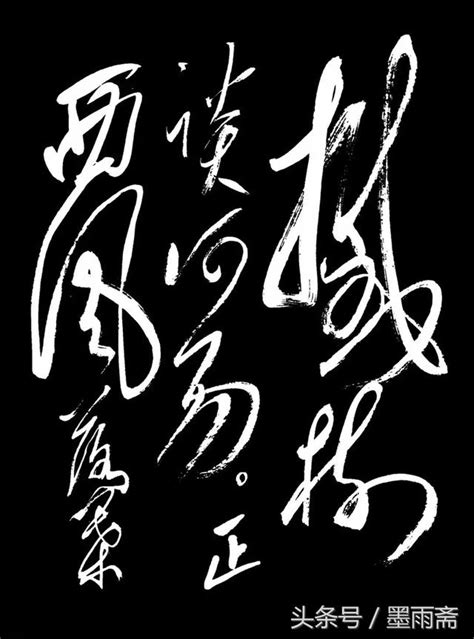 撼树
谈何易。正
西风落叶
头条号 / 墨雨斋